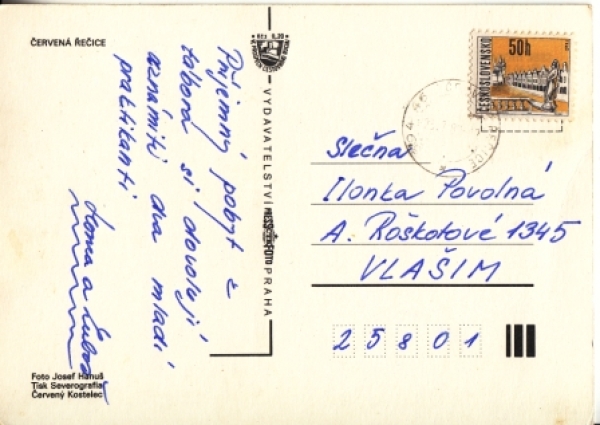 ČERVENÁ ŘEČICE
Příjemný pobyt z
tábora si dovolují
oznámiti dva mladí
praktikanti
Foto Josef Hanuš
Tisk Severografia
Červený Kostelec
VYDAVATELSTVÍ PRESSFOTO PRAHA
ČESKOSLOVENSKO
50h
Slečna
Ilonka Povolná
A. Roškotové 1345
VLAŠIM
25801